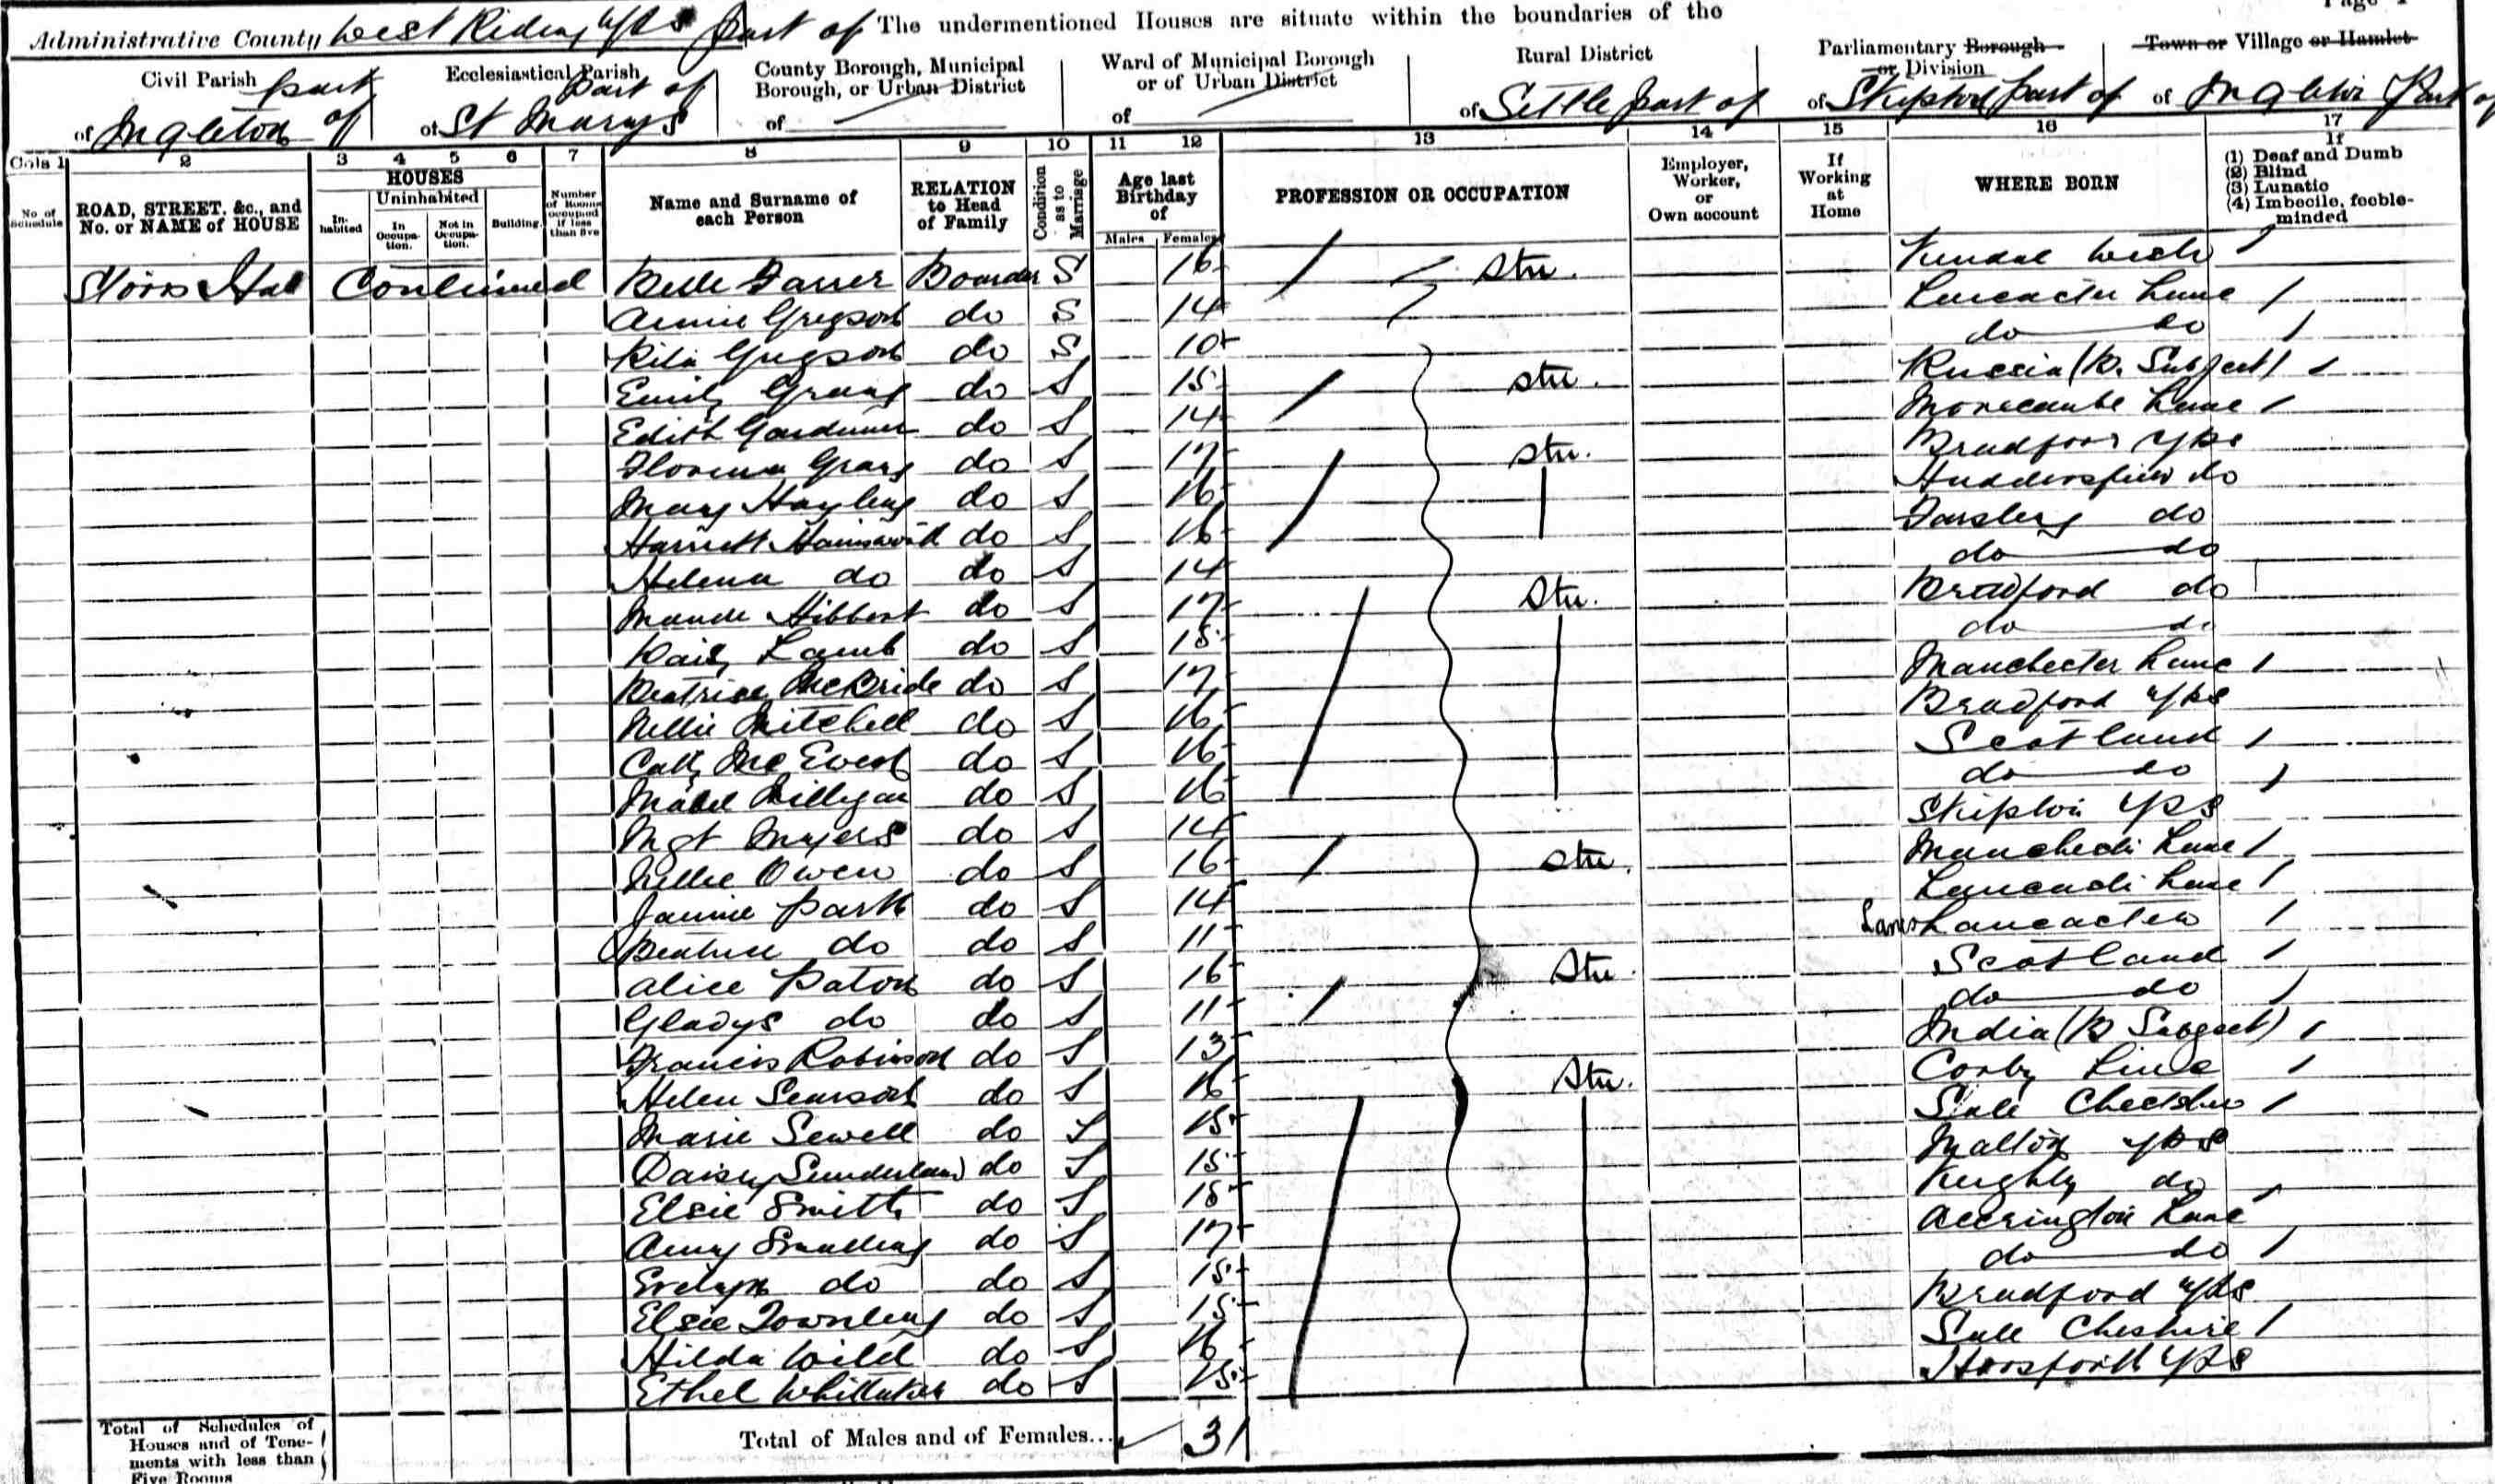 Page
Administrative County West Riding Yks part of The undermentioned Houses are situate within the boundaries of the
Civil Parish part of Ingleton
Ecclesiastical Parish part of of St Marys
County Borough, Municipal Borough, or Urban District of
Ward of Municipal Borough or of Urban District of
Rural District of Settle part of
Parliamentary Borough or Division of Skipton part of
Town or Village or Hamlet of Ingleton Part of
Cols 1 2 3 4 5 6 7 8 9 10 11 12 13 14 15 16 17
No. of Schedule
ROAD, STREET, &c., and No. or NAME of HOUSE
HOUSES
In-habited
Uninhabited
In Occupa-tion.
Not in Occupa-tion.
Building.
Number of Rooms occupied if less than five
Name and Surname of each Person
RELATION to Head of Family
Condition as to Marriage
Age last Birthday of
Males Females
PROFESSION OR OCCUPATION
Employer, Worker, or Own account
If Working at Home
WHERE BORN
If
(1) Deaf and Dumb
(2) Blind
(3) Lunatic
(4) Imbecile, feeble-minded
Continued Belle Farrer Boarder S 16 Stu. Kendal
Annie Gregson do S 14 Lancaster Lanc
Rita Gregson do S 10 do do
Emily do S 15 stu. Russia (B. Subject)
Edith Gardener do S 14 Morecambe Lanc
do S 17 stu. Bradford Yks
Mary do S 16 Huddersfield do
Harriett do S 16 Farsley do
Helena do do S 14 do do
Maude Hibbert do S 17 Stu. Bradford do
Lamb do S 15 do do
Beatrice McBride do S 17 Manchester Lanc
Nellie Mitchell do S 16 Bradford Yks
do S 16 Scotland
Mabel Milligan do S 16 do do
Mgt Myers do S 14 Skipton Yks
Nellie Owen do S 16 stu. Manchester Lanc
Park do S 14 Lancaster Lanc
Beatrice do do S 11 Lancs Lancaster
Alice Paton do S 16 Stu Scotland
Gladys do do S 11 do do
Francis Robinson do S 13 India (B Subject)
Helen do S 16 Stu. Corby
Marie Sewell do S 15 Sale Cheshire
Daisy Sunderland do S 15 Malton Yks
Elsie Smith do S 15 Keighly do
Amy do S 17 Accrington Lanc
Evelyn do do S 15 do do
Elsie do S 15 Bradford Yks
Hilda Wild do S 16 Sale Cheshire
Ethel Whittaker do S 15 Horsforth Yks
Total of Schedules of Houses and of Tene-ments with less than Five Rooms
Total of Males and of Females... 31